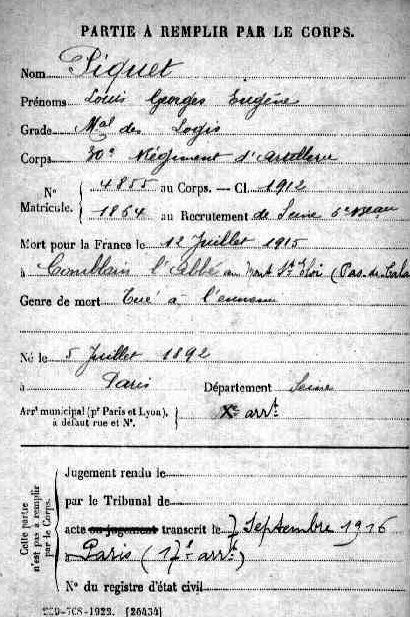 PARTIE À REMPLIR PAR LE CORPS.
Nom Piquet
Prénoms Louis Georges Eugène
Grade Mal des Logis
Corps 30e Régiment d'artillerie
N° Matricule. { 4855 au Corps. — Cl. 1912
1864 au Recrutement de Seine 6e Beau
Mort pour la France le 12 Juillet 1915
à l'abbé au Mont St Eloi (Pas-de-Cala
Genre de mort Tué à l'ennemi
Né le 5 Juillet 1892
à Paris Département Seine
Arrt municipal (pr Paris et Lyon), à défaut rue et N°. } Xe arrt
Cette partie n'est pas à remplir par le Corps.
Jugement rendu le
par le Tribunal de
acte ou jugement transcrit le 7 Septembre 1916
à Paris (17e arrt)
N° du registre d'état civil
708-1922. [26434]